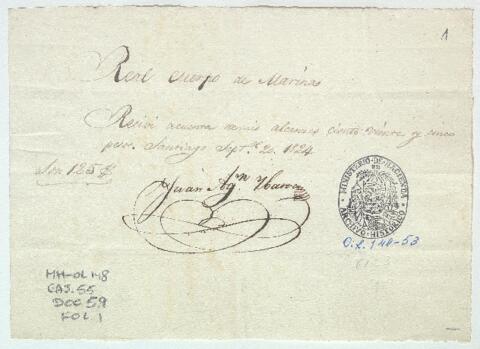 1
Real Cuerpo de Marina
Recivi acuenta demis alcanses Ciento veinte y cinco
pesos. Santiago Sept.e 2. 1824
Son 125 $
Juan Ag.n Ibarra
MINISTERIO·DE·HACIENDA
ARCHIVO·HISTORICO
O.L. 148-53
MH-OL 148
CAJ. 55
DOC 59
FOL 1